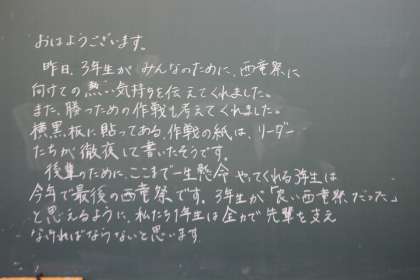 おはようございます。
昨日、3年生が みんなのために、西竜祭に
向けての熱い気持ちを伝えてくれました。
また、勝つための作戦も考えてくれました。
横黒板に貼ってある、作戦の紙は、リーダー
たちが徹夜して書いたそうです。
後輩のために、ここまで一生懸命 やってくれる3年生は
今年で最後の西竜祭です。3年生が「良い西竜祭だった」
と思えるように、私たち1年生は全力で先輩を支え
なければならないと思います